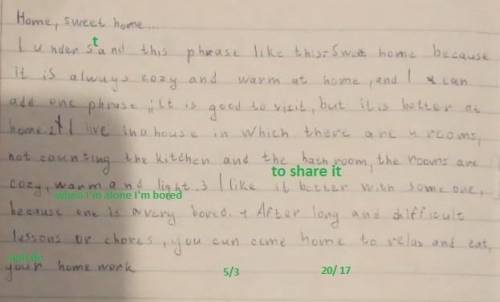 Home, sweet home...
t
I undersand this phrase like this: Sweet home because
it is always cozy and warm at home, and I can
add one phrase: It is good to visit, but it is better at
home. I live in a house in which there are 4 rooms,
not counting the kitchen and the bath room, the rooms are
to share it
cozy, warm and light. 3 I like it better with some one,
when I'm alone I'm bored
because one is a very bored. 4 After long and difficult
lessons or chores, you can come home to relax and eat,
your home work
5/3 20/ 17